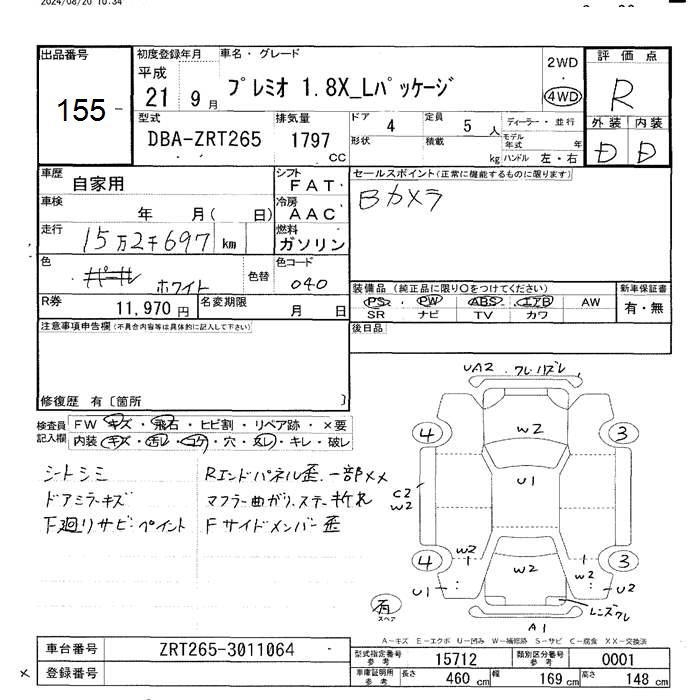 2024/08/20 10:34
出品番号
155
初度登録年月
平成
21 9月
車名・グレード
プレミオ 1.8X_Lパッケージ
2WD
・
4WD
評価点
R
外装 内装
D D
型式
DBA-ZRT265
排気量
1797
CC
ドア 4
定員 5 人
形状
積載 kg
ディーラー・並行
モデル年式 年
ハンドル 左・右
車歴 自家用
シフト
FAT
車検 年 月( 日)
冷房
AAC
走行 15万2千697 km
燃料
ガソリン
色 パール ホワイト
色替
色コード
040
R券 11,970円
名変期限 月 日
セールスポイント(正常に機能するものに限ります)
Bカメラ
装備品 (純正品に限り○をつけてください)
PS・ PW ABS エアB AW
SR ナビ TV カワ
新車保証書
有・無
後日品
注意事項申告欄(不具合内容等は具体的に記入して下さい)
修復歴 有〔箇所 〕
検査員記入欄
FW キズ・飛石・ヒビ割・リペア跡・×要
内装 キズ・汚レ・コゲ・穴・スレ・キレ・破レ
シートシミ
ドアミラーキズ
下廻リサビ・ペイント
Rエンドパネル歪、一部××
マフラー曲ガリ、ステー折れ
Fサイドメンバー歪
UA2 ・ワレ・ズレ
W2
4
3
U1
C2
W2
4
3
W2
W2
W2
U1
U2
有
スペア
レンズワレ
A1
A−キズ E−エクボ U−凹み W−補修跡 S−サビ C−腐食 XX−交換済
車台番号 ZRT265-3011064
登録番号
×
型式指定番号 参考 15712
類別区分番号 参考 0001
車庫証明用 参考 長さ 460cm 幅 169cm 高さ 148cm